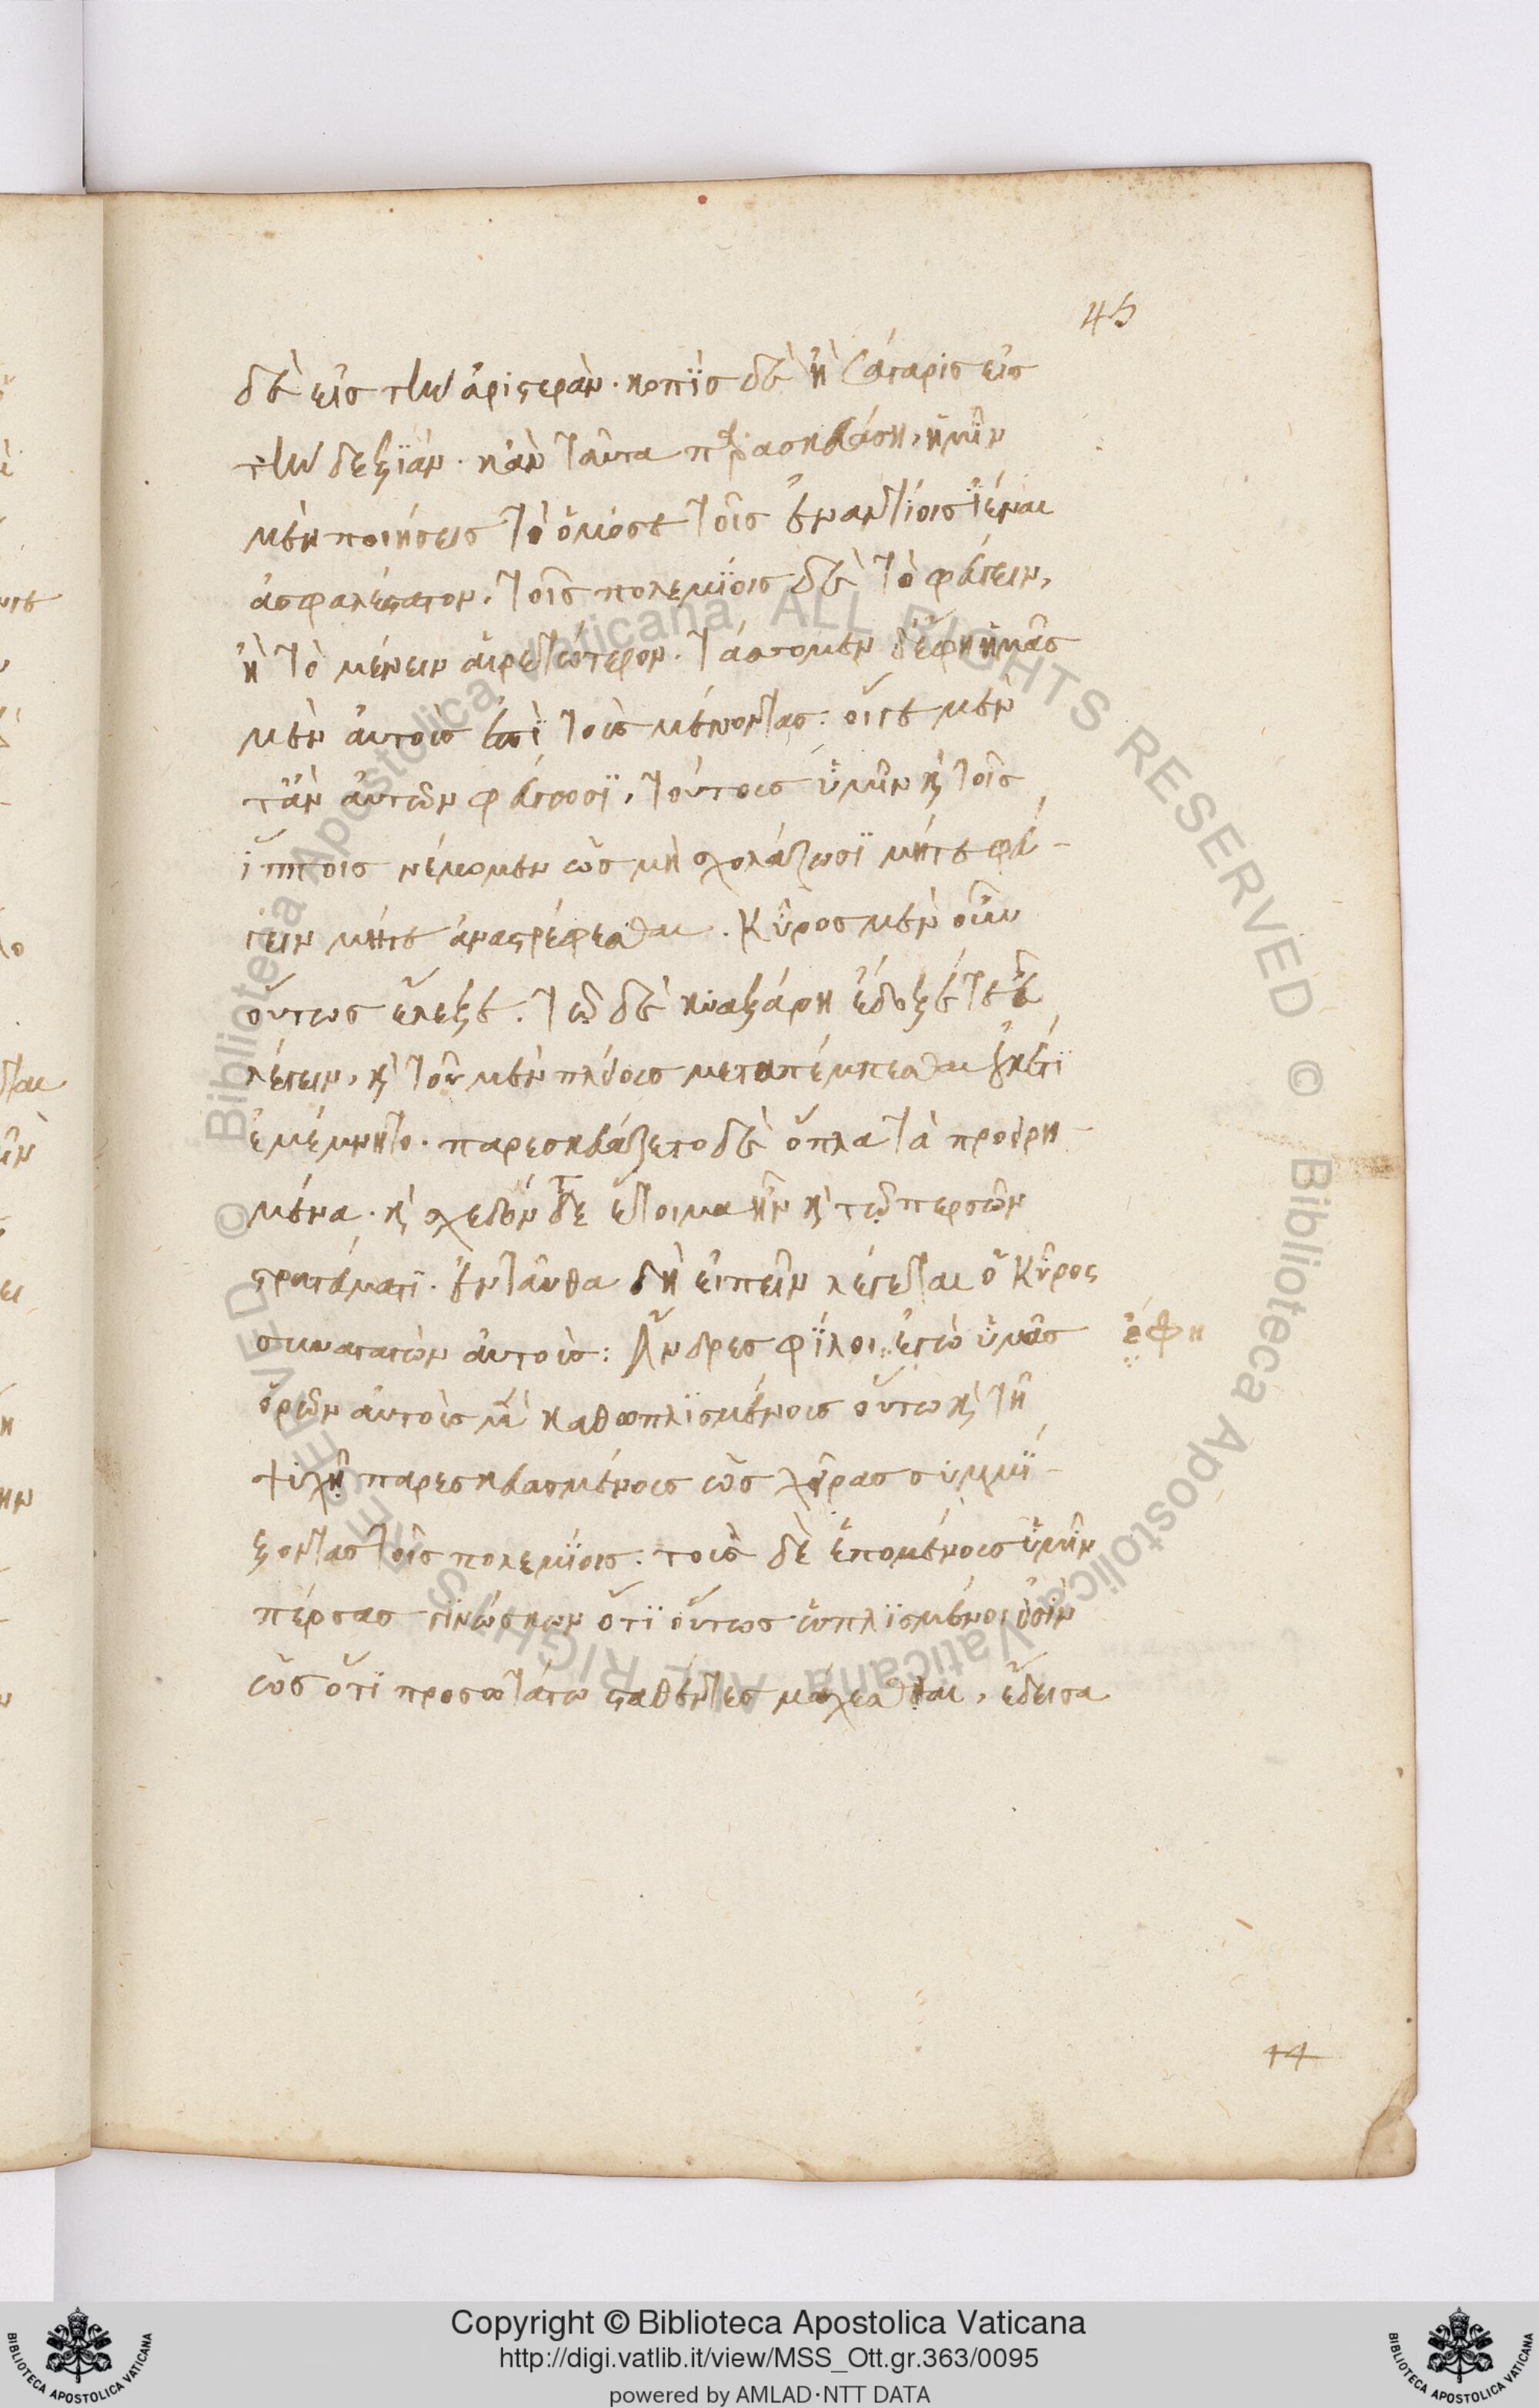 45
δὲ εἰς τὴν ἀριστεράν. κοπὶς δὲ ἢ σάγαρις εἰς
τὴν δεξιάν. κἂν ταῦτα παρασκευάση, ἡμῖν
μὲν ποιήσεις τὸ ὁμόσε τοῖς ἐναντίοις ἰέναι
ἀσφαλέστατον. τοῖς πολεμίοις δὲ τὸ φεύγειν,
ἢ τὸ μένειν αἱρετώτερον. τάττομεν δ' ἔφη ἡμᾶς
μὲν αὐτοὺς ἐπὶ τοὺς μένοντας: οἵγε μὲν
τἂν αὐτῶν φεύγωσι, τούτους ὑμῖν καὶ τοῖς
ἵπποις νέμομεν ὡς μὴ σχολάζωσι μήτε φεύ-
γειν μήτε ἀναστρέφεσθαι. Κῦρος μὲν οὖν
οὕτως ἔλεξε. τῷ δὲ κυαξάρη ἔδοξέ τε εὖ
λέγειν, καὶ τοῦ μὲν πλείους μεταπέμπεσθαι οὐκέτι
ἐμέμνητο. παρεσκευάζετο δὲ ὅπλα τὰ προειρη-
μένα. καὶ σχεδόν τε ἕτοιμα ἦν καὶ τῶν περσῶν
στρατεύματι. ἐνταῦθα δὴ εἰπεῖν λέγεται ὁ Κῦρος
συναγαγὼν αὐτούς: Ἄνδρες φίλοι, ἐγὼ ὑμᾶς
ἔφη
ὁρῶν αὐτοὺς μὲν καθωπλισμένους οὕτω καὶ τῇ
ψυχῇ παρεσκευασμένους ὡς χεῖρας συμμί-
ξοντας τοῖς πολεμίοις. τοὺς δὲ ἑπομένους ὑμῖν
πέρσας γινώσκων ὅτι οὕτως ὡπλισμένοι εἰσὶν
ὡς ὅτι προσωτάτω σταθέντες μάχεσθαι, ἔδεισα
14
Copyright © Biblioteca Apostolica Vaticana
http://digi.vatlib.it/view/MSS_Ott.gr.363/0095
powered by AMLAD·NTT DATA